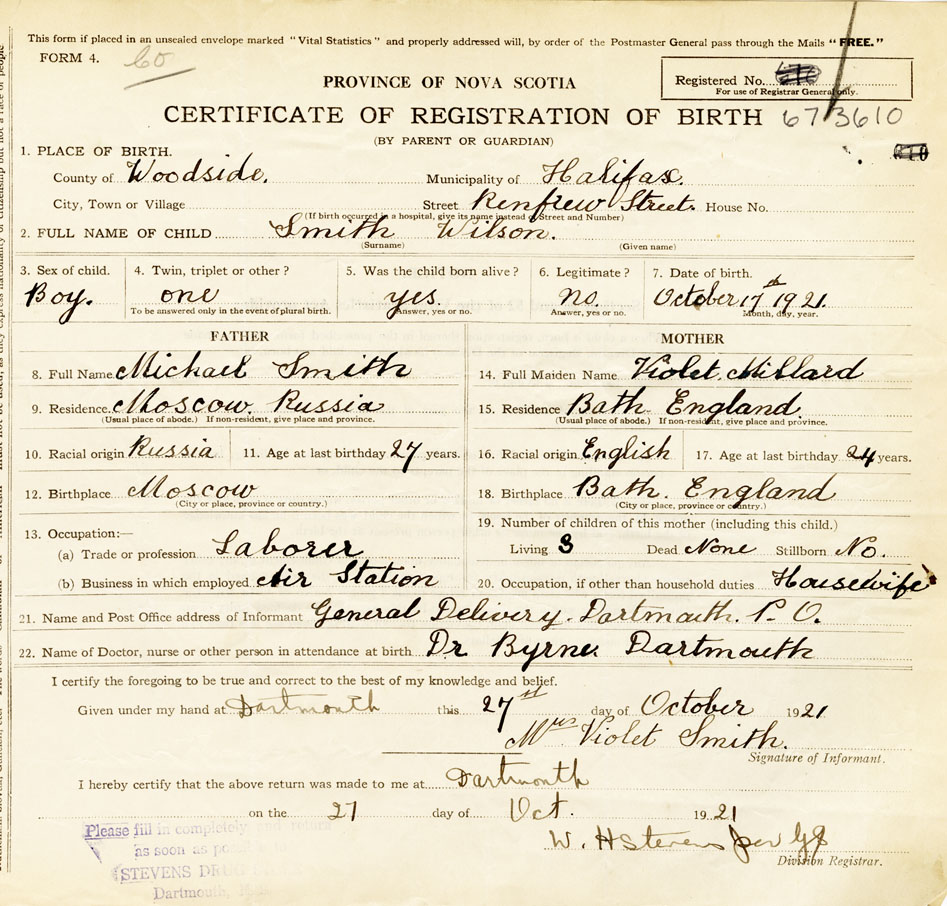 This form if placed in an unsealed envelope marked "Vital Statistics" and properly addressed will, by order of the Postmaster General pass through the Mails "FREE."
FORM 4. 60
PROVINCE OF NOVA SCOTIA
Registered No.
For use of Registrar General only.
CERTIFICATE OF REGISTRATION OF BIRTH 673610
(BY PARENT OR GUARDIAN)
1. PLACE OF BIRTH.
County of Woodside. Municipality of Halifax.
City, Town or Village Street Renfrew Street. House No.
(If birth occurred in a hospital, give its name instead of Street and Number)
2. FULL NAME OF CHILD Smith Wilson.
(Surname) (Given name)
3. Sex of child. 4. Twin, triplet or other? 5. Was the child born alive? 6. Legitimate? 7. Date of birth.
Boy. one yes. no. October 17th 1921.
To be answered only in the event of plural birth. Answer, yes or no. Answer, yes or no. Month, day, year.
FATHER MOTHER
8. Full Name Michael Smith 14. Full Maiden Name Violet. Millard
9. Residence. Moscow. Russia 15. Residence Bath England.
(Usual place of abode.) If non-resident, give place and province. (Usual place of abode.) If non-resident, give place and province.
10. Racial origin Russia 11. Age at last birthday 27 years. 16. Racial origin English 17. Age at last birthday 24 years.
12. Birthplace Moscow 18. Birthplace Bath. England
(City or place, province or country.) (City or place, province or country.)
13. Occupation:— 19. Number of children of this mother (including this child.)
(a) Trade or profession Laborer Living 3 Dead None Stillborn No.
(b) Business in which employed Air Station 20. Occupation, if other than household duties Housewife
21. Name and Post Office address of Informant General Delivery. Dartmouth. P. O.
22. Name of Doctor, nurse or other person in attendance at birth Dr Byrne. Dartmouth
I certify the foregoing to be true and correct to the best of my knowledge and belief.
Given under my hand at Dartmouth this 27st day of October 1921
Mrs Violet Smith.
Signature of Informant.
I hereby certify that the above return was made to me at Dartmouth
on the 27 day of Oct. 1921
W. H Stevens per
Division Registrar.
Please fill in completely and return
as soon as possible to
STEVENS DRUG
Dartmouth,